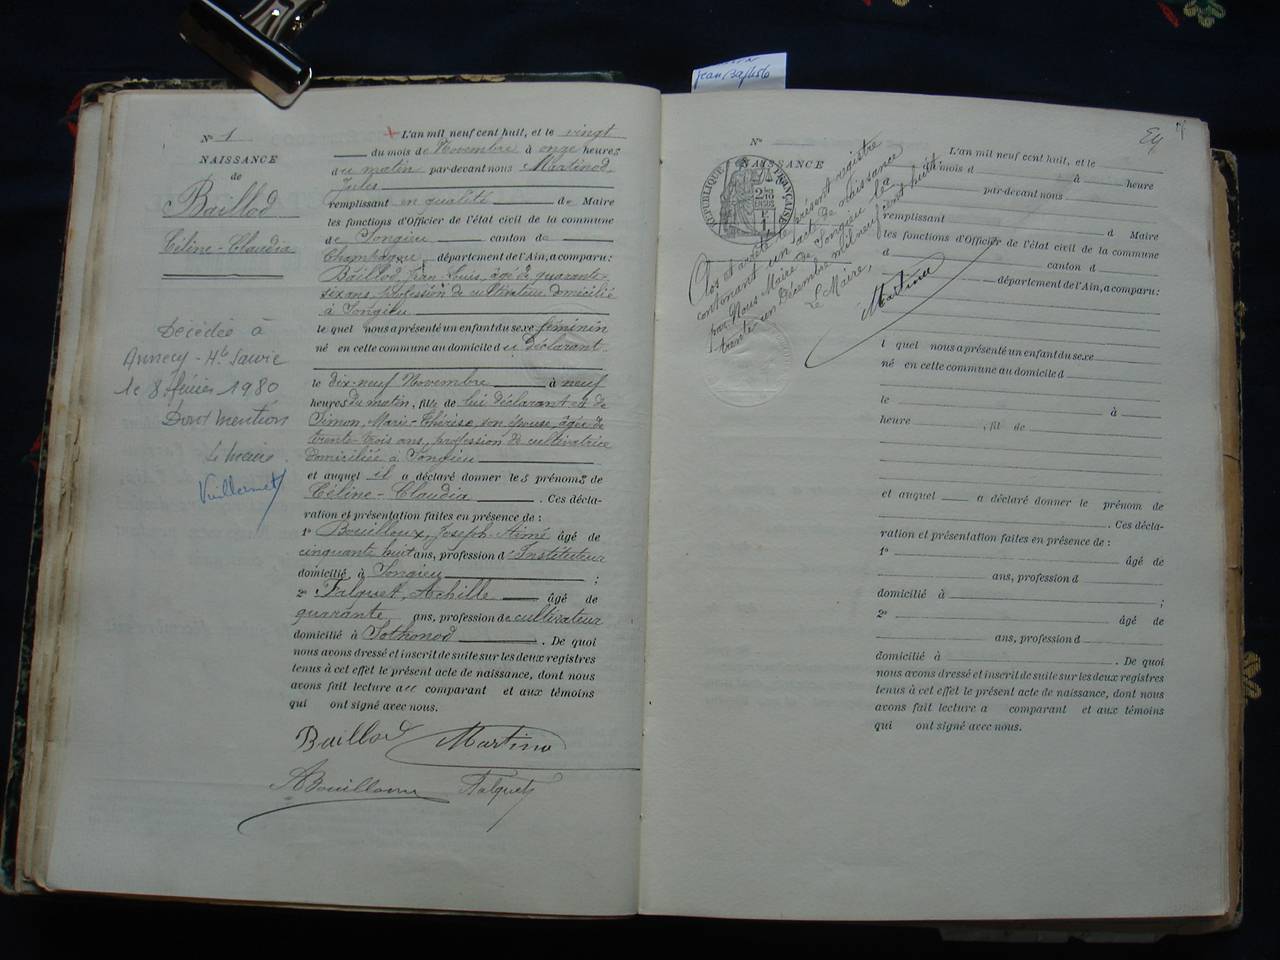 Jean Baptiste
Nº 1
NAISSANCE
de
Baillod
Céline-Claudia
Décédée à
Annecy - Hte Savoie
le 8 février 1980
Dont mention
le maire
Vuillermet
L'an mil neuf cent huit, et le vingt
du mois de Novembre à onze heures
du matin par-devant nous Martinod
Jules
remplissant en qualité de Maire
les fonctions d'Officier de l'état civil de la commune
de Songieu canton de
Champagne, département de l'Ain, a comparu:
Baillod, Jean Louis, âgé de quarante-
six ans, profession de cultivateur domicilié
à Songieu
le quel nous a présenté un enfant du sexe féminin
né en cette commune au domicile du déclarant
le dix-neuf Novembre à neuf
heures du matin, fille de lui déclarant et de
Simon, Marie-Thérèse, son épouse, âgée de
trente-trois ans, profession de cultivatrice
domiciliée à Songieu
et auquel il a déclaré donner les prénoms de
Céline-Claudia. Ces décla-
ration et présentation faites en présence de :
1º Bouilloux, Joseph-Aimé âgé de
cinquante huit ans, profession d'Instituteur
domicilié à Songieu ;
2º Falquet, Achille âgé de
quarante ans, profession de cultivateur
domicilié à Sothonod. De quoi
nous avons dressé et inscrit de suite sur les deux registres
tenus à cet effet le présent acte de naissance, dont nous
avons fait lecture au comparant et aux témoins
qui ont signé avec nous.
Baillod Martinod
ABouilloux Falquet
Nº
NAISSANCE
RÉPUBLIQUE FRANÇAISE
Clos et arrêté le présent registre
contenant un acte de naissance
par Nous Maire de Songieu le
trente un Décembre mil neuf cent huit.
Le Maire,
Martinod
L'an mil neuf cent huit, et le
du mois d à heure
par devant nous
remplissant d Maire
les fonctions d'Officier de l'état civil de la commune
d canton d
département de l'Ain, a comparu :
l quel nous a présenté un enfant du sexe
né en cette commune au domicile d
le à
heure , fil de
et auquel a déclaré donner le prénom de
. Ces décla-
ration et présentation faites en présence de :
1º âgé de
ans, profession d
domicilié à ;
2º âgé de
ans, profession d
domicilié à . De quoi
nous avons dressé et inscrit de suite sur les deux registres
tenus à cet effet le présent acte de naissance, dont nous
avons fait lecture a comparant et aux témoins
qui ont signé avec nous.